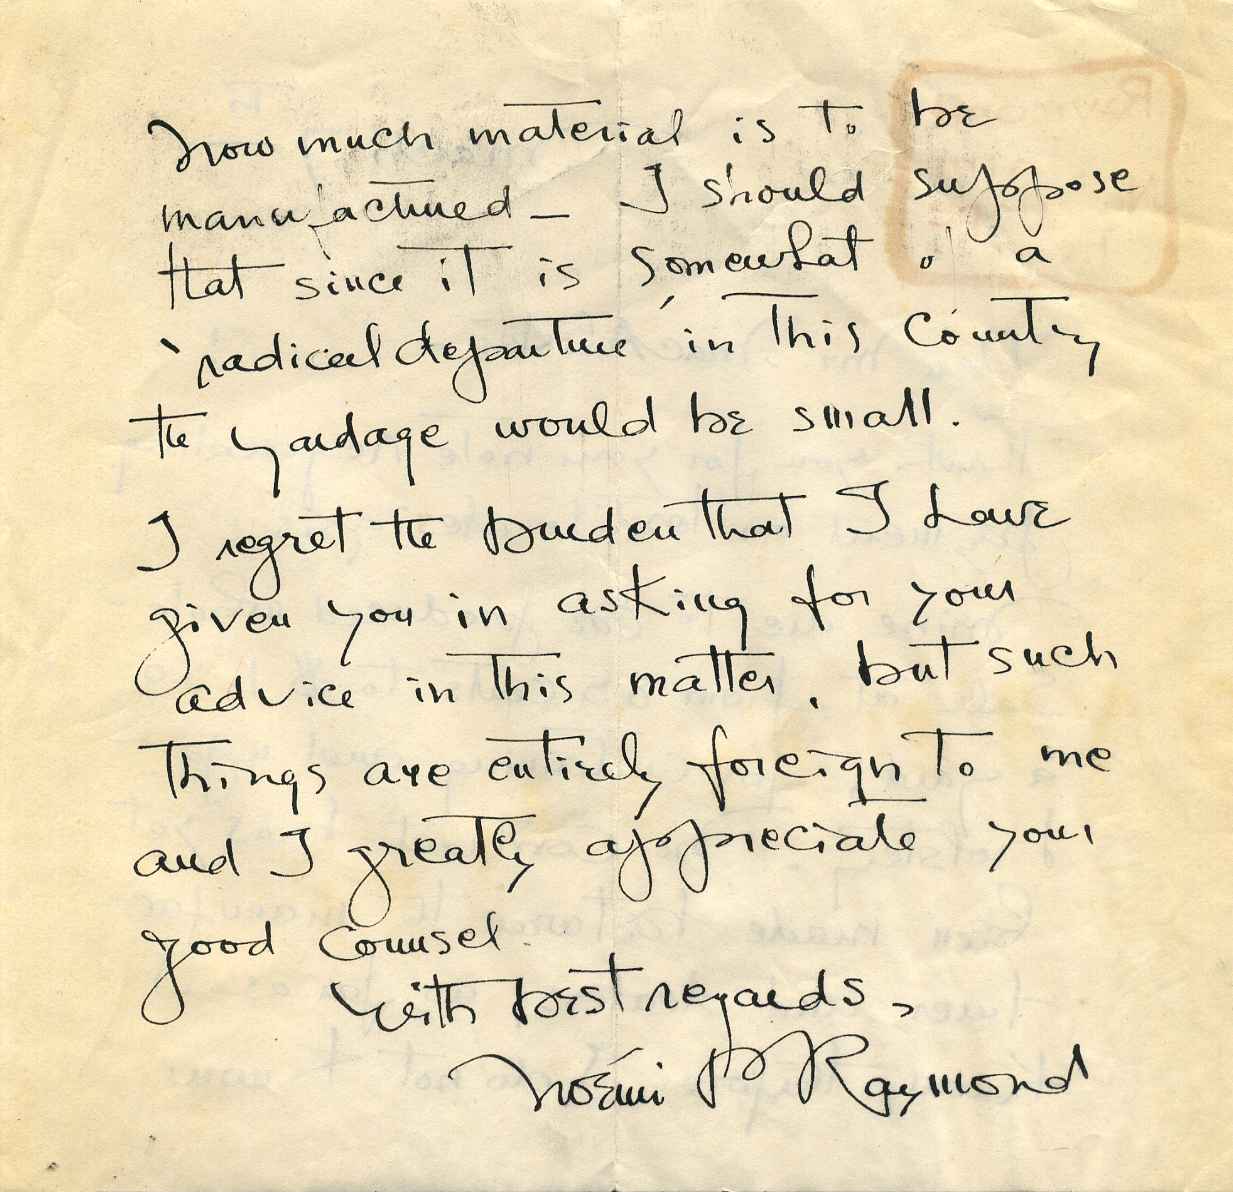 how much material is to be
manufactured – I should suppose
that since it is somewhat of a
'radical departure' in this Country
the yardage would be small.
I regret the burden that I have
given you in asking for your
advice in this matter, but such
things are entirely foreign to me
and I greatly appreciate your
good Counsel.
With best regards,
Noémi P Raymond